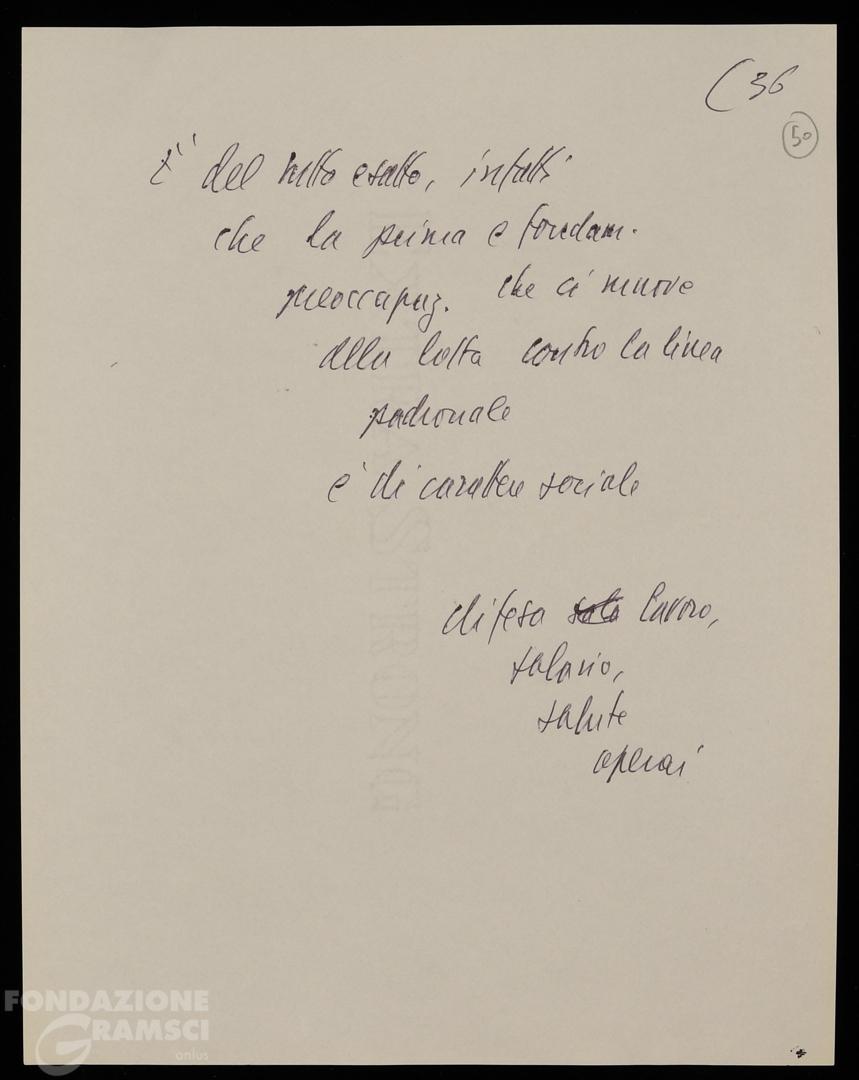 (36
50
E' del tutto esatto, infatti
che la prima e fondam.
preoccupaz. che ci muove
alla lotta contro la linea
padronale
e' di carattere sociale
difesa lavoro,
salario,
salute
operai
EXTRA STRONG
FONDAZIONE
GRAMSCI
onlus